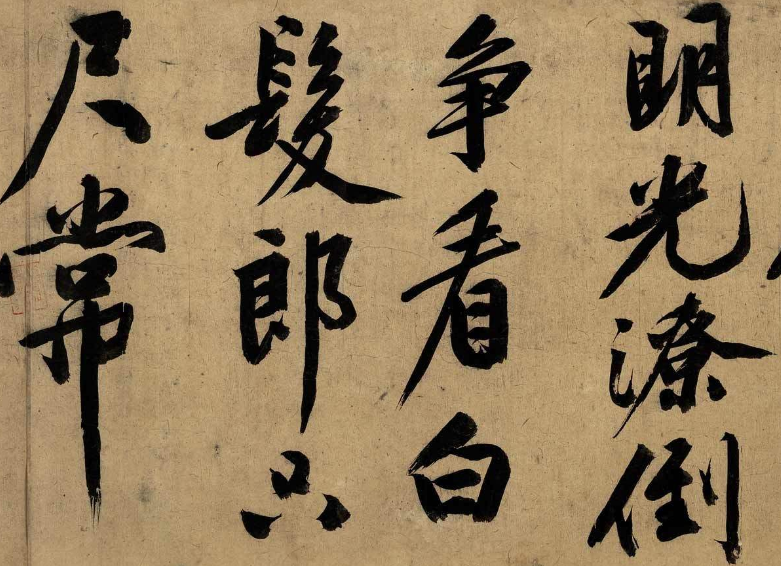 明光潦倒
争看白
髮郎只
尺常